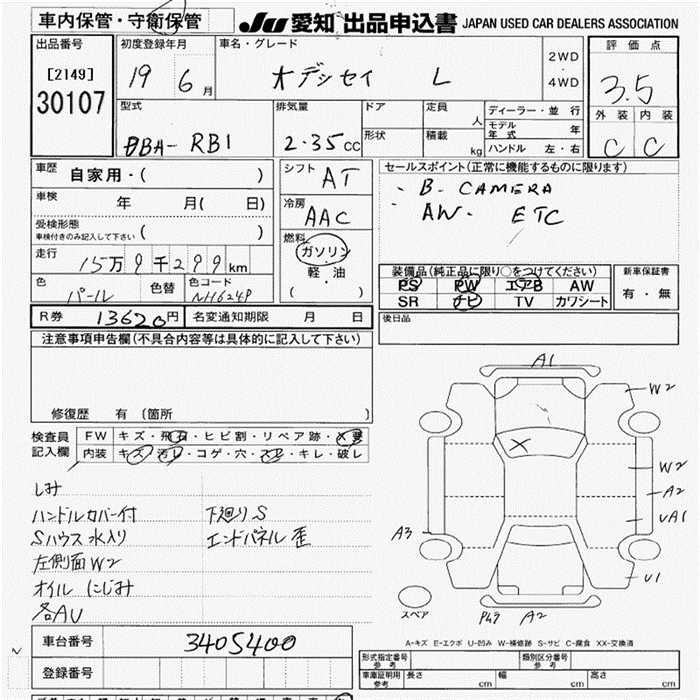 車内保管・守衛保管
JU 愛知 出品申込書 JAPAN USED CAR DEALERS ASSOCIATION
出品番号 [2149] 30107
初度登録年月 19 6月
車名・グレード オデッセイ L
2WD・4WD
評価点 3.5
外装 C 内装 C
型式 DBA-RB1
排気量 2.35cc
ドア
形状
定員 人
積載 kg
ディーラー・並行
モデル年式 年
ハンドル 左・右
車歴 自家用・( )
車検 年 月( 日)
受検形態
車検付きのみ記入して下さい ( )
走行 15万9千299km
色 パール 色替 色コード NH624P
シフト AT
冷房 AAC
燃料 ガソリン・軽・油 ( )
セールスポイント(正常に機能するものに限ります)
・B-CAMERA
・AW・ ETC
装備品(純正品に限り○をつけてください)
PS PW エアB AW
SR ナビ TV カワシート
新車保証書 有・無
R券 13620円 名変通知期限 月 日
後日品
注意事項申告欄(不具合内容等は具体的に記入して下さい)
修復歴 有 (箇所 )
検査員記入欄
FW キズ・飛石・ヒビ割・リペア跡・X要
内装 キズ・汚レ・コゲ・穴・スレ・キレ・破レ
しみ
ハンドルカバー付 下廻りS
Sハウス水入り エンドパネル歪
左側面W2
オイルにじみ
各AU
A1
W2
X
W2
A2
UA1
A3
U1
スペア
P49 A2
A-キズ E-エクボ U-凹み W-補修跡 S-サビ C-腐食 XX-交換済
車台番号 3405400
登録番号
形式指定番号 参考
類別区分番号 参考
車庫証明用 参考 長さ 幅 高さ